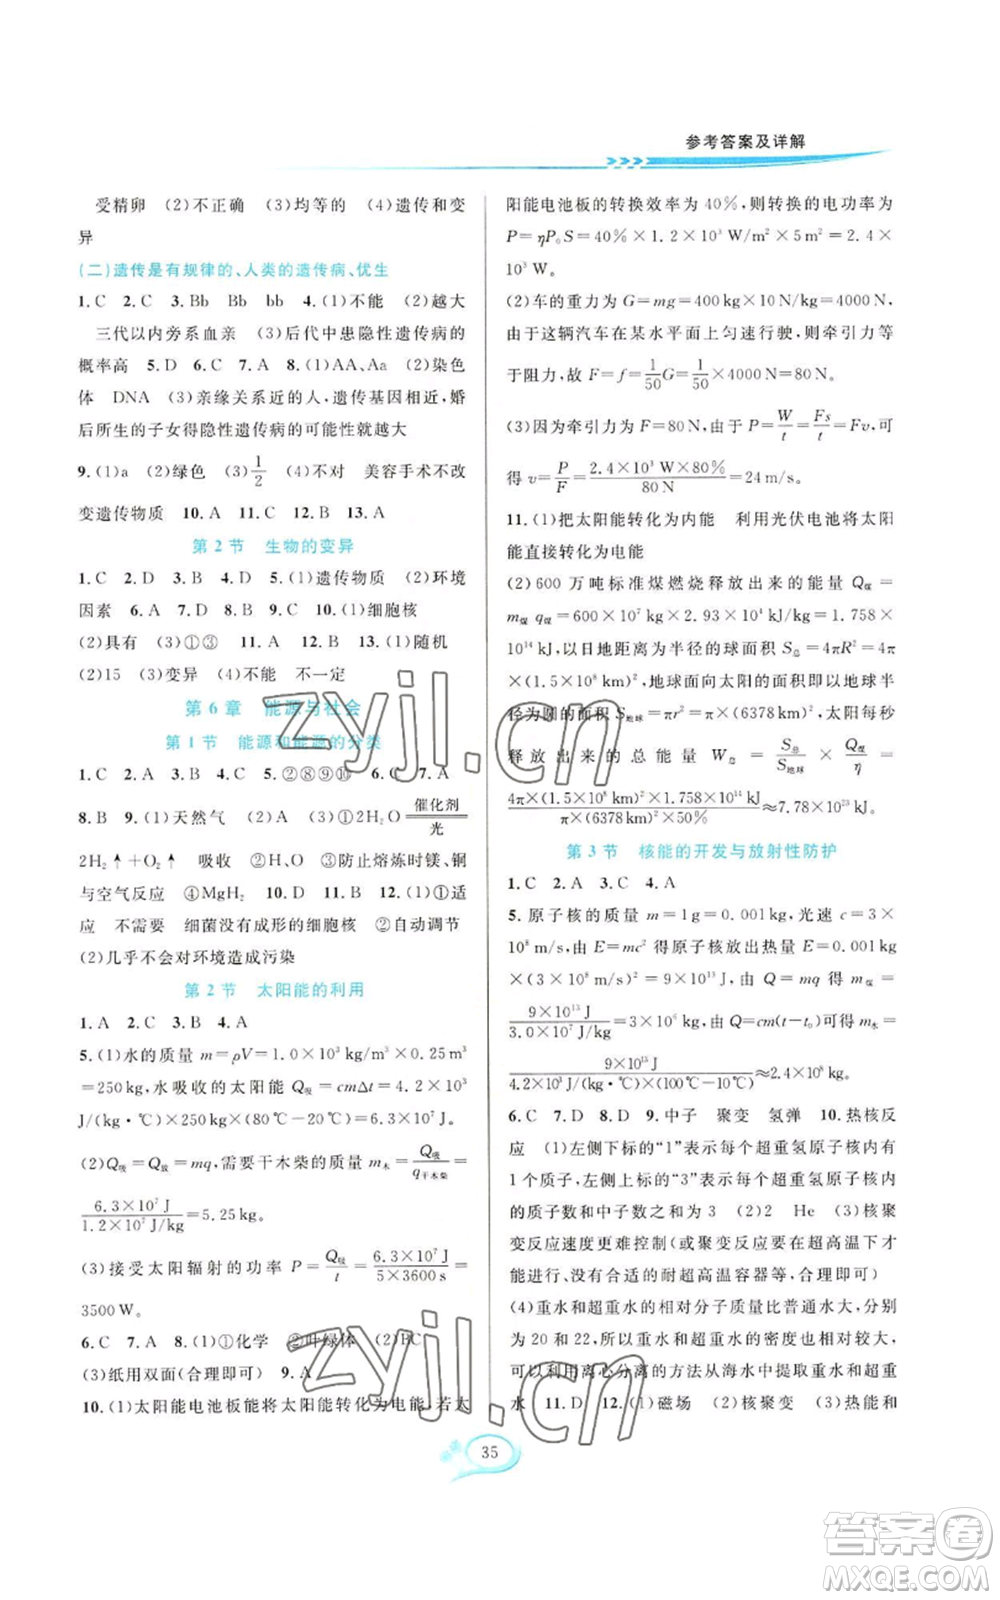 参考答案及详解
受精卵 (2)不正确 (3)均等的 (4)遗传和变
异
(二)遗传是有规律的、人类的遗传病、优生
1. C 2. C 3. Bb Bb bb 4. (1)不能 (2)越大
三代以内旁系血亲 (3)后代中患隐性遗传病的
概率高 5. D 6. C 7. A 8. (1)AA、Aa (2)染色
体 DNA (3)亲缘关系近的人,遗传基因相近,婚
后所生的子女得隐性遗传病的可能性就越大
9. (1)a (2)绿色 (3)1/2 (4)不对 美容手术不改
变遗传物质 10. A 11. C 12. B 13. A
第 2 节 生物的变异
1. C 2. D 3. B 4. D 5. (1)遗传物质 (2)环境
因素 6. A 7. D 8. D 9. C 10. (1)细胞核
(2)具有 (3)①③ 11. A 12. B 13. (1)随机
(2)15 (3)变异 (4)不能 不一定
第 6 章 能源与社会
第 1 节 能源和能源的分类
1. C 2. A 3. C 4. C 5. ②⑧⑨⑩ 6. C 7. A
8. B 9. (1)天然气 (2)A (3)①2H₂O 催化剂/光
2H₂↑+O₂↑ 吸收 ②H₂ ③防止熔炼时镁、铜
与空气反应 ④MgH₂ 10. A 11. C 12. (1)①适
应 不需要 细菌没有成形的细胞核 ②自动调节
(2)几乎不会对环境造成污染
第 2 节 太阳能的利用
1. A 2. C 3. B 4. A
5. (1)水的质量 m=ρV=1.0×10³ kg/m³×0.25 m³
=250 kg,水吸收的太阳能 Q吸=cmΔt=4.2×10³
J/(kg·℃)×250 kg×(80℃-20℃)=6.3×10⁷ J
(2)Q吸=Q放=mq,需要干木柴的质量 m木=Q吸/q干木柴=
6.3×10⁷ J/1.2×10⁷ J/kg=5.25 kg。
(3)接受太阳辐射的功率 P=Q吸/t=6.3×10⁷ J/5×3600 s=
3500 W。
6. C 7. A 8. (1)①化学 ②叶绿体 (2)BC
(3)纸用双面(合理即可) 9. A
10. (1)太阳能电池板能将太阳能转化为电能,若太
阳能电池板的转换效率为 40%,则转换的电功率为
P=ηP₀S=40%×1.2×10³ W/m²×5 m²=2.4×
10³ W。
(2)车的重力为 G=mg=400 kg×10 N/kg=4000 N,
由于这辆汽车在某水平面上匀速行驶,则牵引力等
于阻力,故 F=f=1/50G=1/50×4000 N=80 N。
(3)因为牵引力为 F=80 N,由于 P=W/t=Fs/t=Fv,可
得 v=P/F=2.4×10³ W×80%/80 N=24 m/s。
11. (1)把太阳能转化为内能 利用光伏电池将太阳
能直接转化为电能
(2)600 万吨标准煤燃烧释放出来的能量 Q煤=
m煤q煤=600×10⁷ kg×2.93×10⁴ kJ/kg=1.758×
10¹⁴ kJ,以日地距离为半径的球面积 S总=4πR²=4π
×(1.5×10⁸ km)²,地球面向太阳的面积即以地球半
径为圆的面积 S地球=πr²=π×(6378 km)²,太阳每秒
释放出来的总能量 W总=S总/S地球×Q煤/η=
4π×(1.5×10⁸ km)²×1.758×10¹⁴ kJ/π×(6378 km)²×50%≈7.78×10²³ kJ。
第 3 节 核能的开发与放射性防护
1. C 2. A 3. C 4. A
5. 原子核的质量 m=1 g=0.001 kg,光速 c=3×
10⁸ m/s,由 E=mc² 得原子核放出热量 E=0.001 kg
×(3×10⁸ m/s)²=9×10¹³ J,由 Q=mq 得 m煤=
9×10¹³ J/3.0×10⁷ J/kg=3×10⁶ kg,由 Q=cm(t-t₀)得 m水=
9×10¹³ J/4.2×10³ J/(kg·℃)×(100℃-10℃)≈2.4×10⁸ kg。
6. C 7. D 8. D 9. 中子 聚变 氢弹 10. 热核反
应 (1)左侧下标的“1”表示每个超重氢原子核内有
1 个质子,左侧上标的“3”表示每个超重氢原子核内
的质子数和中子数之和为 3 (2)2 He (3)核聚
变反应速度更难控制(或聚变反应在超高温下才
能进行,没有合适的耐超高温容器等,合理即可)
(4)重水和超重水的相对分子质量比普通水大,分别
为 20 和 22,所以重水和超重水的密度也相对较大,
可以利用离心分离的方法从海水中提取重水和超重
水 11. D 12. (1)磁场 (2)核聚变 (3)热能和
35
zyjl.cn
zyjl.cn
答案圈
MXQE.COM